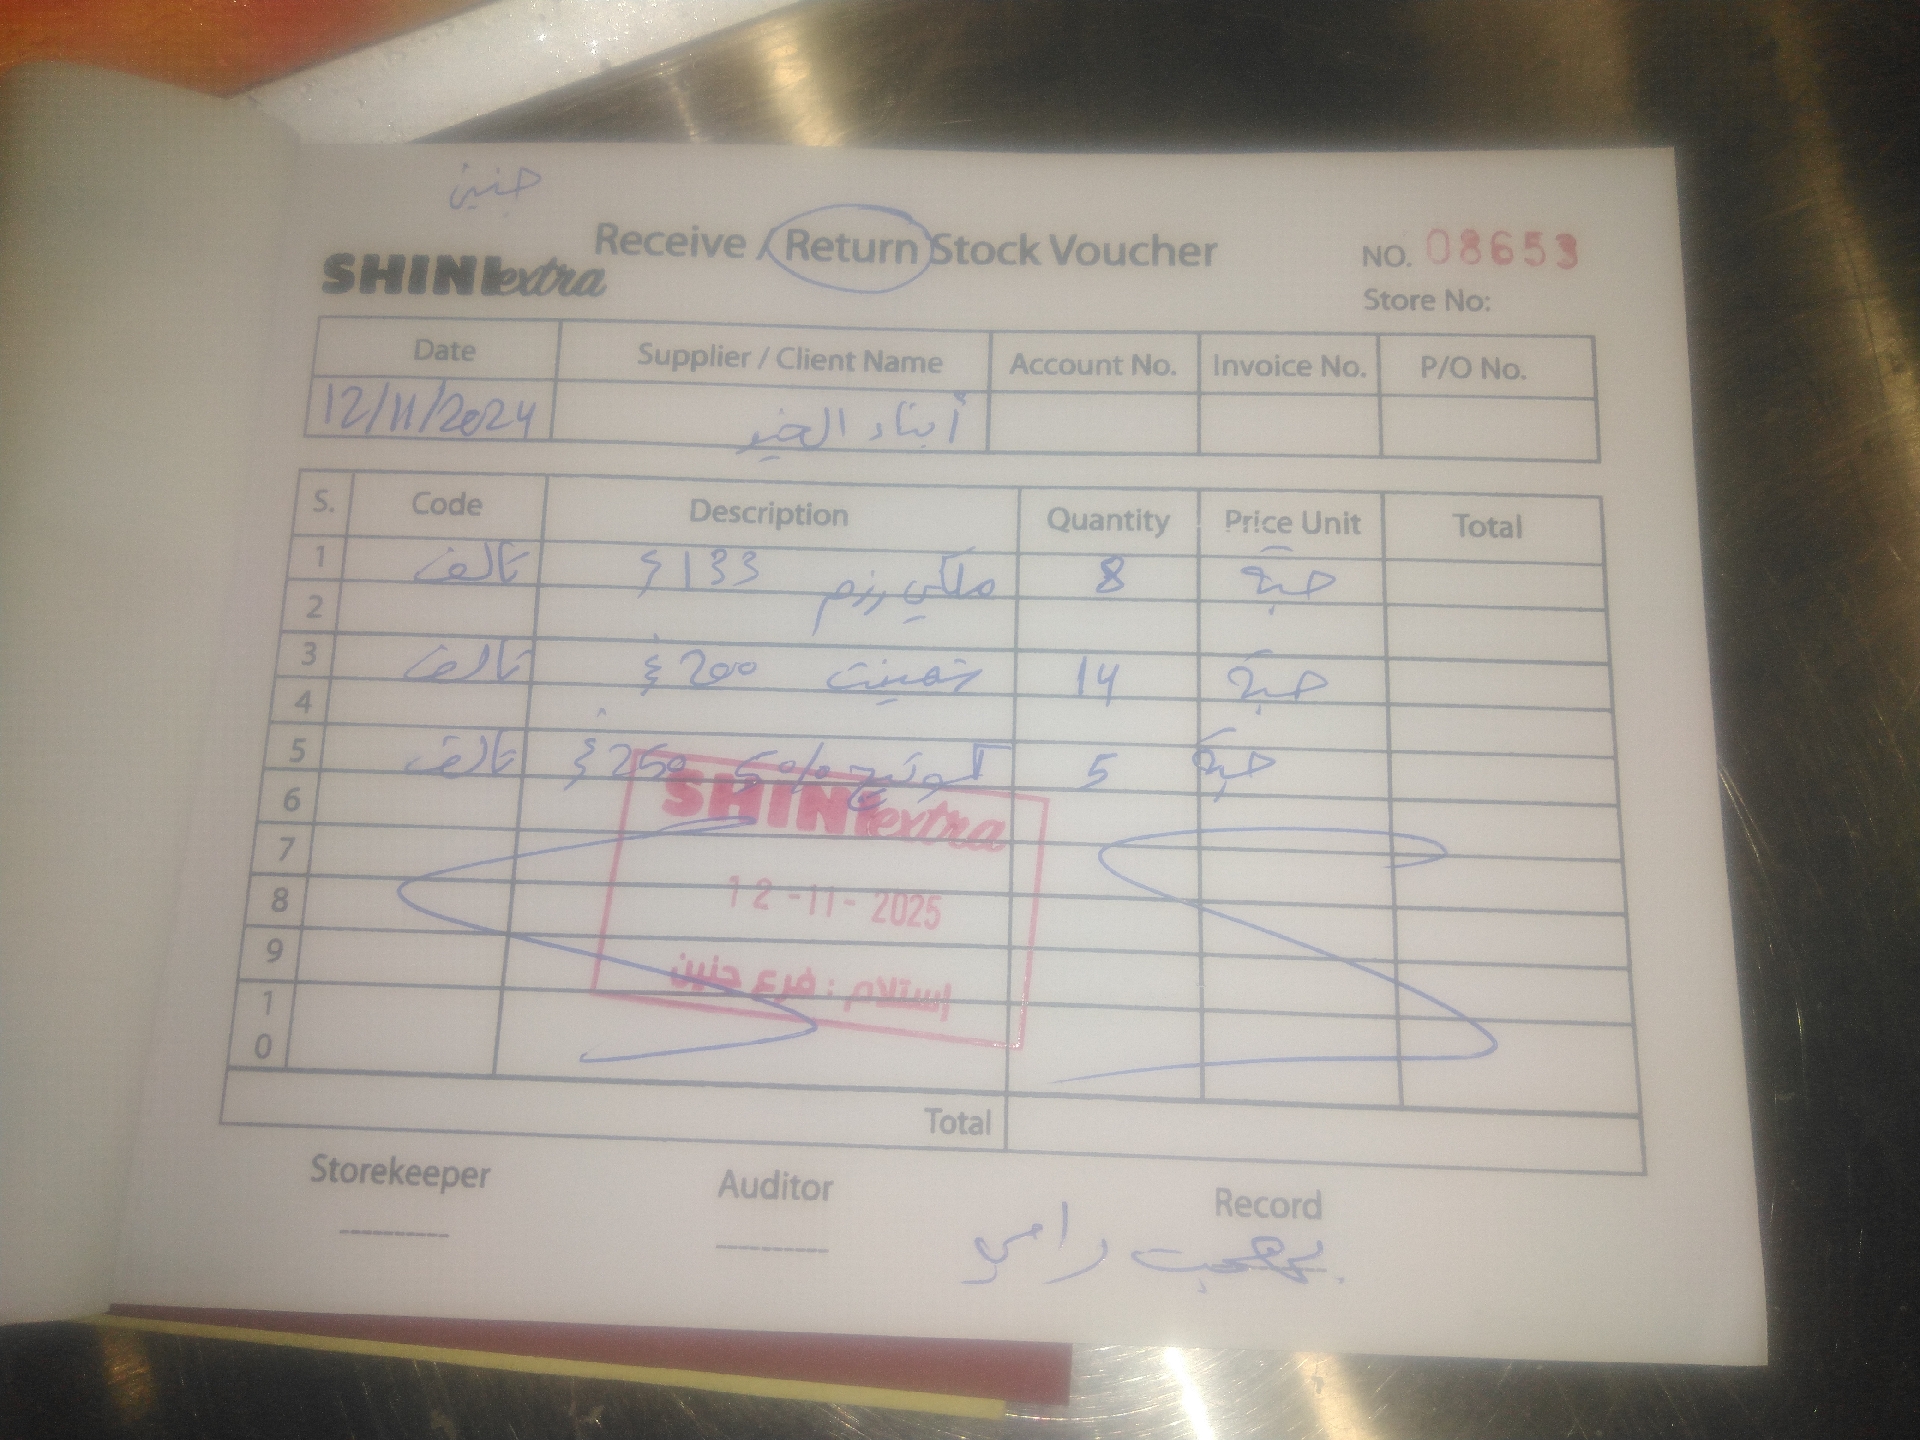 جنين
Receive / Return Stock Voucher
SHINI extra
NO. 08653
Store No:
Date Supplier / Client Name Account No. Invoice No. P/O No.
12/11/2024 أبناء الخير
S. Code Description Quantity Price Unit Total
1 تالف 133 غ 8 حبة
2
3 تالف 200 غ 14 حبة
4
5 تالف كوتيج 5% 250 غ 5 حبة
6
7
8
9
10
SHINI extra
12-11-2025
إستلام : فرع جنين
Total
Storekeeper Auditor Record
رامي